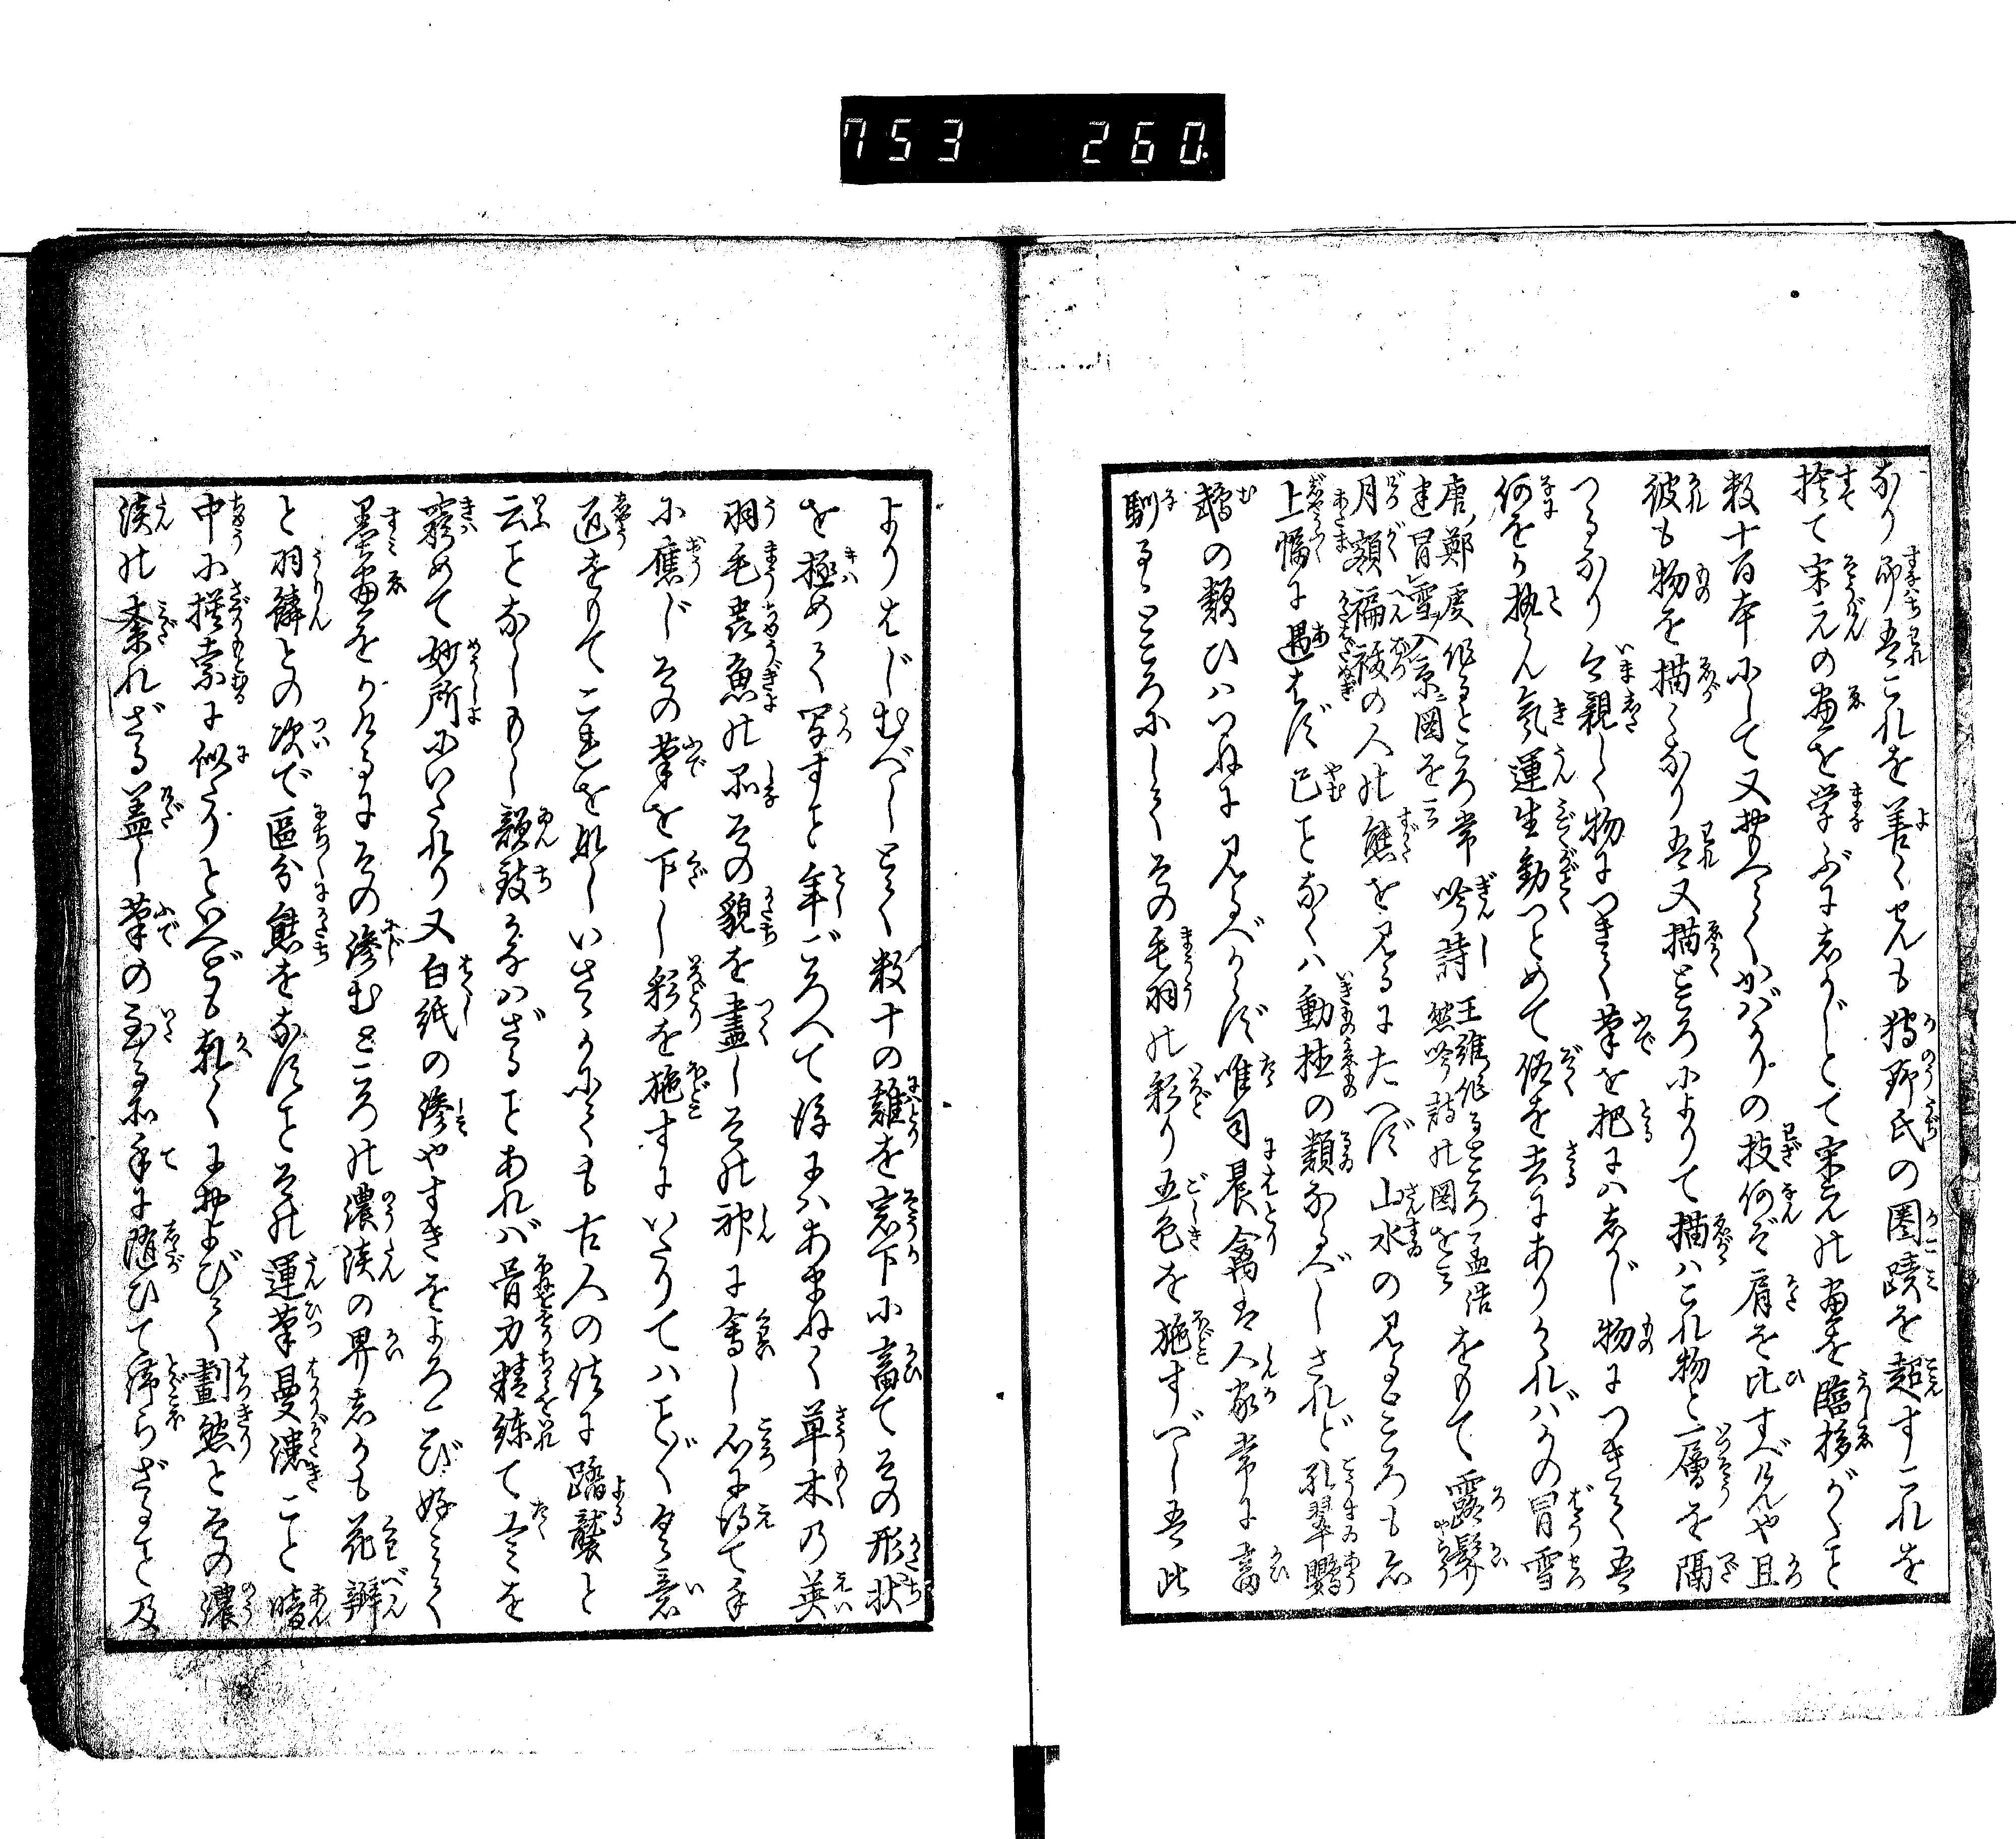 753 260.
なり即吾これを善くせんも狩野氏の圏蹟を超すこれを
捨て宋元の画を学ぶにしかじとて宋元の画を臨移がくこと
数十百本にして又おもへらくかばかりの技何ぞ肩を比すべけんや且
彼も物を描くなり吾又描ところによりて描ハこれ物と一層を隔
つるなり今親しく物につきて筆を把にハしかじ物につきて吾
何をか執らん気運生動つとめて俗を去にありけれバかの冒雪
唐鄭虔作るところ常建冒雪入京図を云吟詩王維作るところ孟浩然吟詩の図を云をもて露髻
月額褊裰の人の態を見るにたへず山水の見るところも亦
上幅に遇はず已ことなくハ動植の類なるべしされど孔翠鸚
鵡の類ひハつねに見るべからず唯司晨禽は人家常に畜
馴るところにしてその毛羽の彩り五色を施すべし吾此
よりはじむべしとて数十の雞を窓下に畜てその形状
を極めて写すこと年ごろへて後にハあまねく草木乃英
羽毛虫魚の品その貌を尽しその神に会し心に得て手
に應じその筆を下し彩を施すにいたりてハことごとく意
匠をもてこれを成しいさゝかにても古人の法に蹈襲と
云ことなしもし韻致かなハざることあれバ骨力精練て工を
窮めて妙所にいたれり又白紙の滲やすきをよろこび好みて
墨画をかけるにその滲むところの濃淡の界あたかも花瓣
と羽鱗との次で区分態をなすことその運筆曼漶こと暗
中に摸索に似たりといへども乾くにおよびて劃然とその濃
淡の紊れざる蓋し筆の至る所手に随ひて滞らざること及